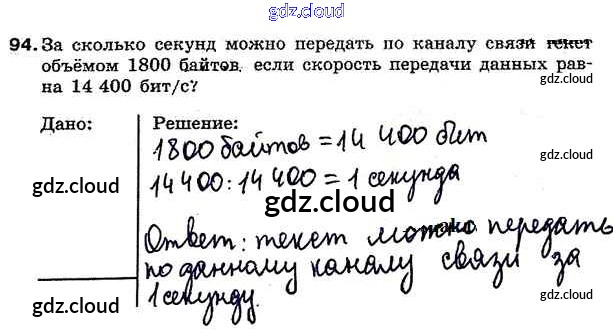 gdz.cloud
94. За сколько секунд можно передать по каналу связи текст
объёмом 1800 байтов, если скорость передачи данных рав-
на 14 400 бит/с?
gdz.cloud
gdz.cloud
Дано:
Решение:
1800 байтов = 14 400 бит
gdz.cloud
14 400 : 14 400 = 1 секунда
gdz.cloud
gdz.cloud
Ответ: текст можно передать
по данному каналу связи за
gdz.cloud
1 секунду.
gdz.cloud
gdz.cloud